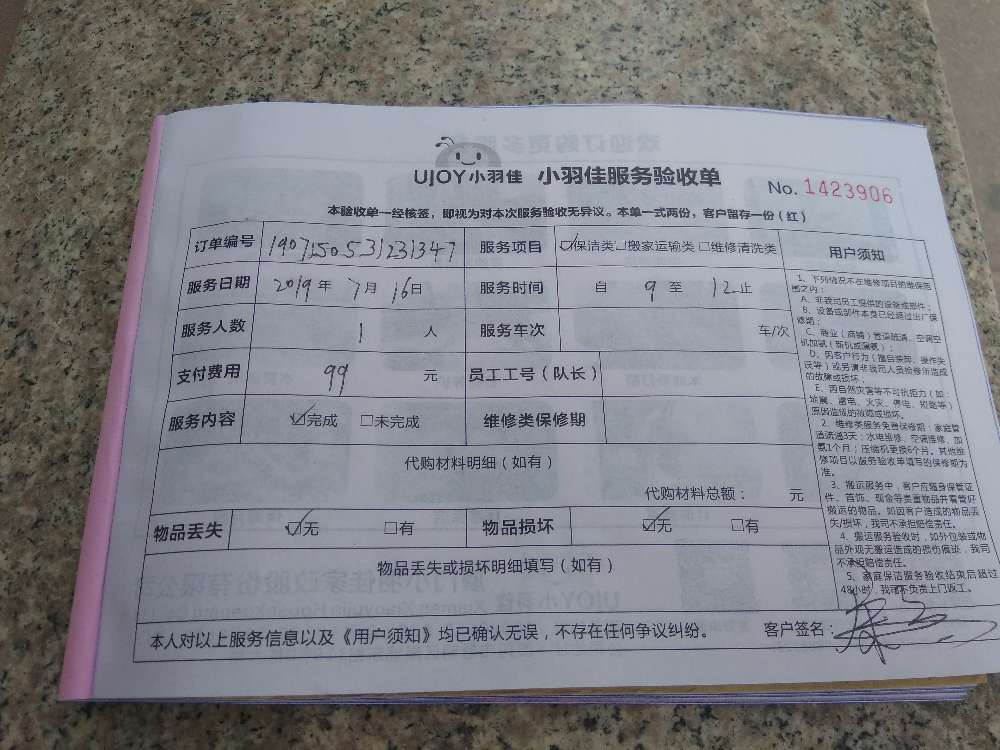 UJOY小羽佳 小羽佳服务验收单
No. 1423906
本验收单一经核签，即视为对本次服务验收无异议。本单一式两份，客户留存一份（红）
订单编号 1907150531231347 服务项目 ☑保洁类□搬家运输类□维修清洗类
服务日期 2019年 7月 16日 服务时间 自 9 至 12 止
服务人数 1 人 服务车次 车/次
支付费用 99 元 员工工号（队长）
服务内容 ☑完成 □未完成 维修类保修期
代购材料明细（如有）
代购材料总额： 元
物品丢失 ☑无 □有 物品损坏 ☑无 □有
物品丢失或损坏明细填写（如有）
本人对以上服务信息以及《用户须知》均已确认无误，不存在任何争议纠纷。 客户签名：
用户须知
1、下列情况不在维修项目的维保范
围之内：
A、非我司员工提供的设备或部件；
B、设备或部件本身已经超过出厂保
修期；
C、商业（商铺）管道疏通、空调空
机加氨（新机或隔氨）；
D、因客户行为（擅自装卸、操作失
误等）或另请非我司人员检修而造成
的故障或损坏；
E、因自然灾害等不可抗拒力（如：
地震、雷电、火灾、停电、短路等）
原因造成的故障或损坏。
2、维修类服务免费保修期：家庭管
道疏通3天；水电维修、空调维修、加
氨1个月；压缩机更换6个月。其他维
修项目以服务验收单填写的保修期为
准。
3、搬运服务中，客户应随身保管证
件、首饰、现金等贵重物品并看管好
搬运的物品。如因客户造成的物品丢
失/损坏，我司不承担赔偿责任。
4、搬运服务验收时，如外包装或物
品外观无搬运造成的损伤痕迹，我司
不承担赔偿责任。
5、家庭保洁服务验收结束后超过
48小时，我司不负责上门返工。